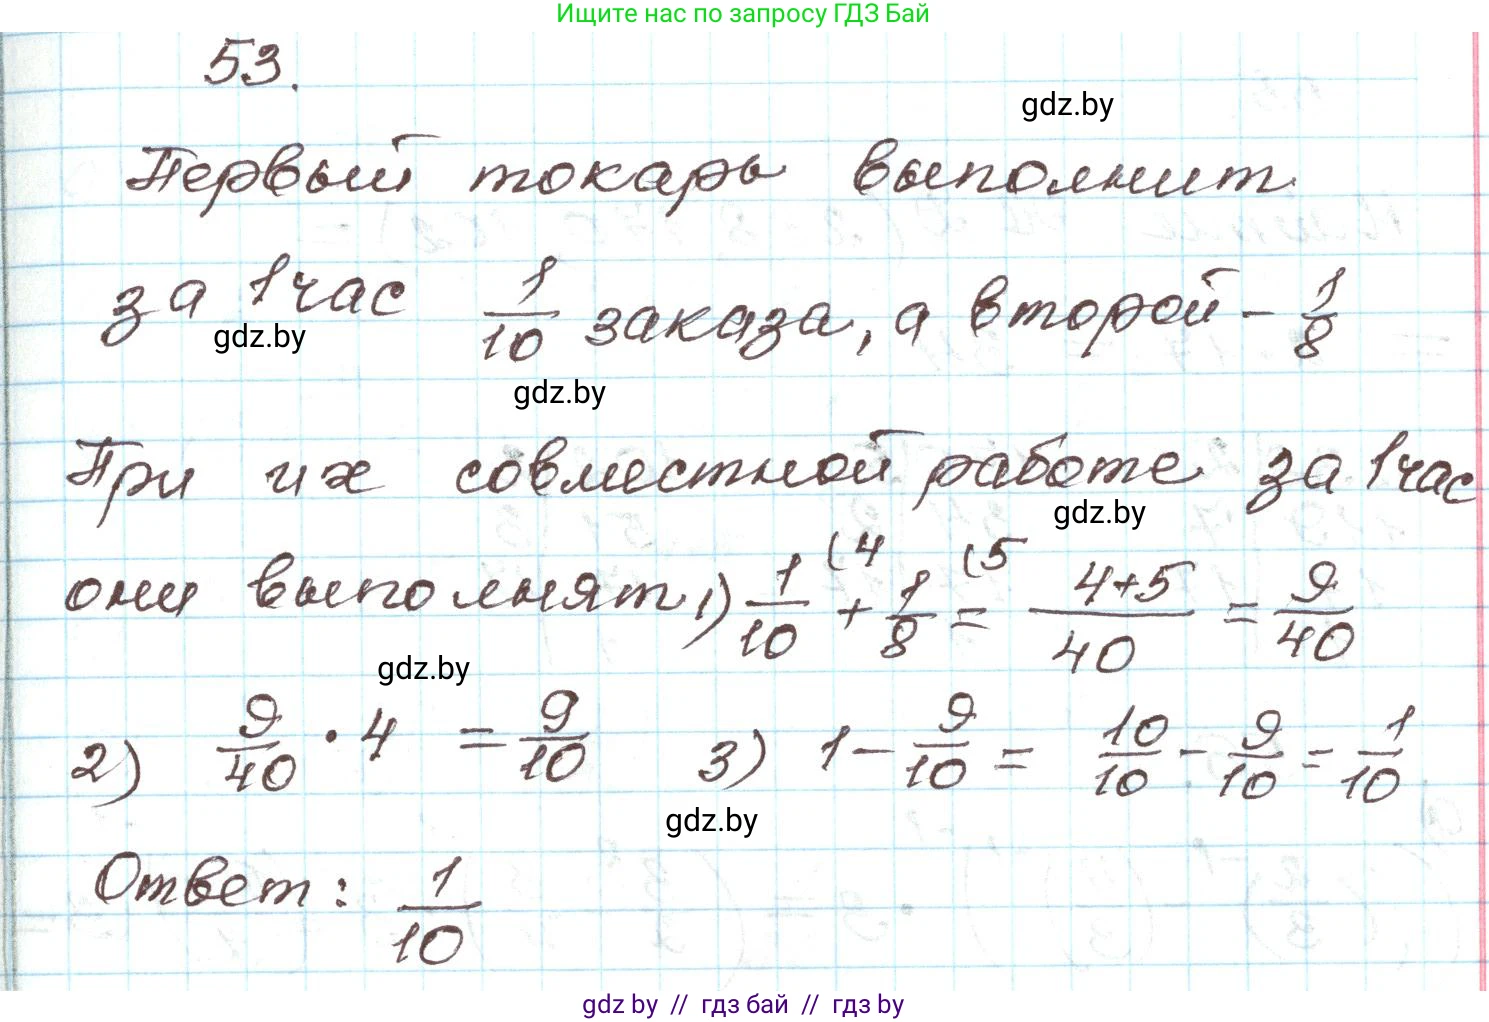 Ищите нас по запросу ГДЗ Бай
53.
gdz.by
Первый токарь выполнит
за 1 час 1/10 заказа, а второй - 1/8
gdz.by
gdz.by
При их совместной работе за 1 час
gdz.by
они выполнят 1) 1/10 (4 + 1/8 (5 = 4+5/40 = 9/40
gdz.by
2) 9/40 · 4 = 9/10 3) 1 - 9/10 = 10/10 - 9/10 = 1/10
gdz.by
Ответ: 1/10
gdz by // гдз бай // гдз by